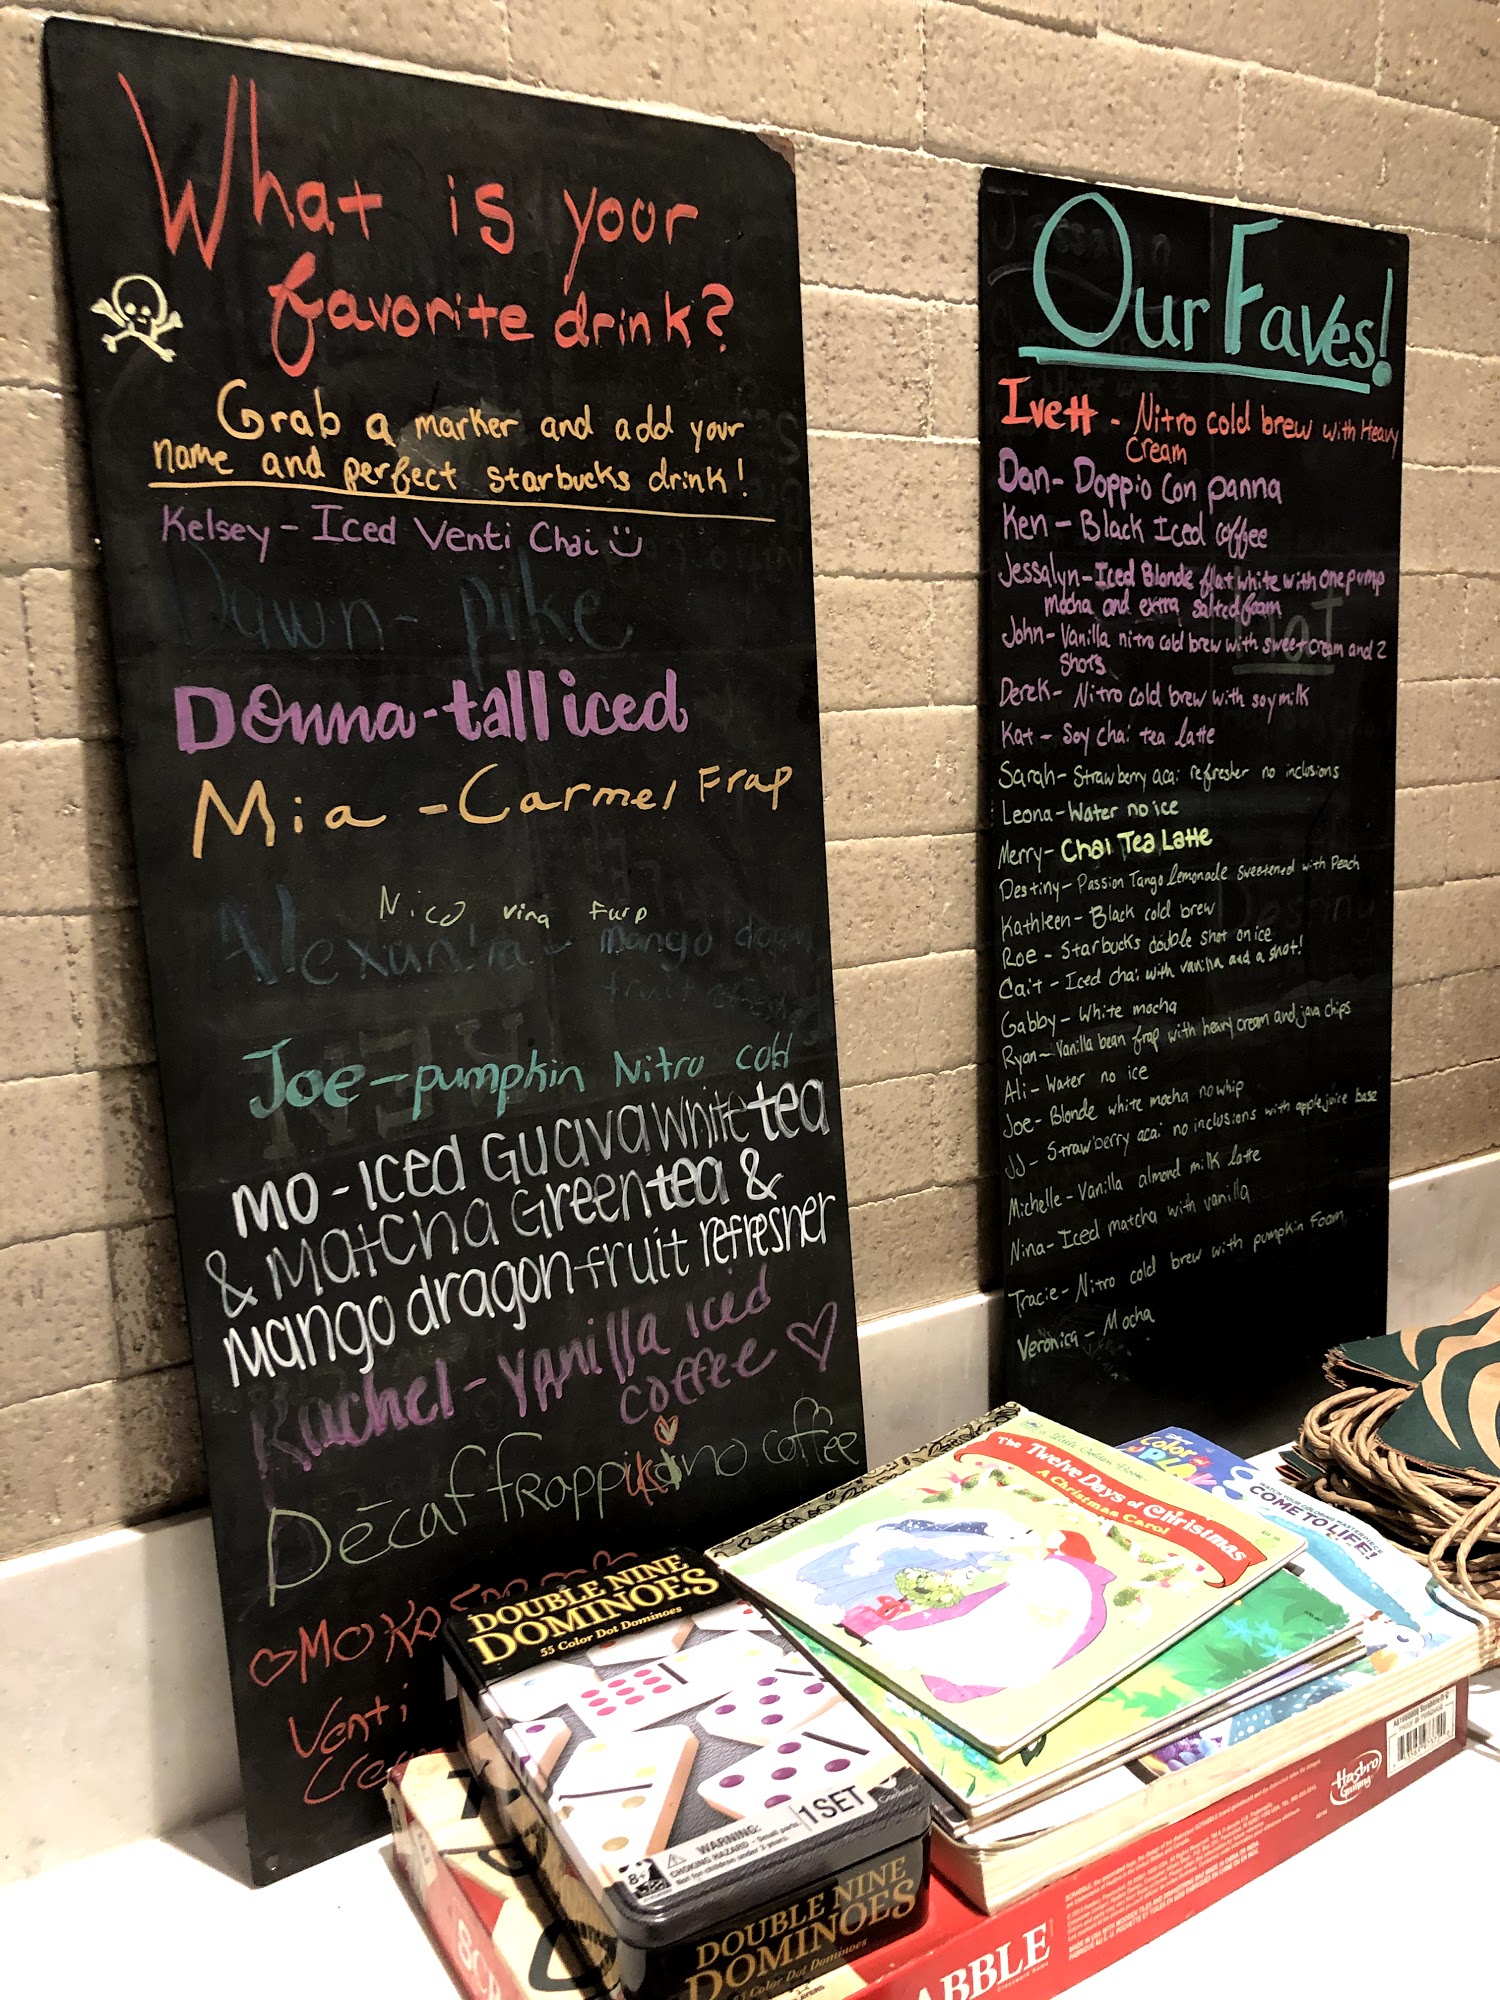 What is your
favorite drink?
Grab a marker and add your
name and perfect starbucks drink!
Kelsey - Iced Venti Chai
Dawn - pike
Donna - tall iced
Mia - Carmel Frap
Nico
Alexandria - mango dragon
fruit
Joe - pumpkin Nitro cold
MO - Iced Guava white tea
& Matcha Green tea &
Mango dragonfruit refresher
Rachel - Vanilla Iced
coffee
Decaf frappuccino coffee
Venti
Our Faves!
Ivett - Nitro cold brew with Heavy
Cream
Dan - Doppio Con panna
Ken - Black Iced Coffee
Jessalyn - Iced Blonde flat white with one pump
mocha and extra salted foam
John - Vanilla nitro cold brew with sweet cream and 2
shots
Derek - Nitro cold brew with soy milk
Kat - Soy chai tea latte
Sarah - Strawberry acai refresher no inclusions
Leona - Water no ice
Merry - Chai Tea Latte
Destiny - Passion Tango lemonade sweetened with Peach
Kathleen - Black cold brew
Roe - Starbucks double shot on ice
Cait - Iced chai with vanilla and a shot!
Gabby - White mocha
Ryan - Vanilla bean frap with heavy cream and java chips
Ali - Water no ice
Joe - Blonde white mocha no whip
JJ - Strawberry acai no inclusions with apple juice base
Michelle - Vanilla almond milk latte
Nina - Iced matcha with vanilla
Tracie - Nitro cold brew with pumpkin Foam
Veronica - Mocha
a Little Golden Book
The Twelve Days of Christmas
A Christmas Carol
Color
PLAY
COME TO LIFE!
DOUBLE NINE
DOMINOES
55 Color Dot Dominoes
1 SET
WARNING:
CHOKING HAZARD - Small parts
Not for children under 3 years.
8+
DOUBLE NINE
DOMINOES
55 Color Dot Dominoes
Hasbro
Gaming
ABBLE